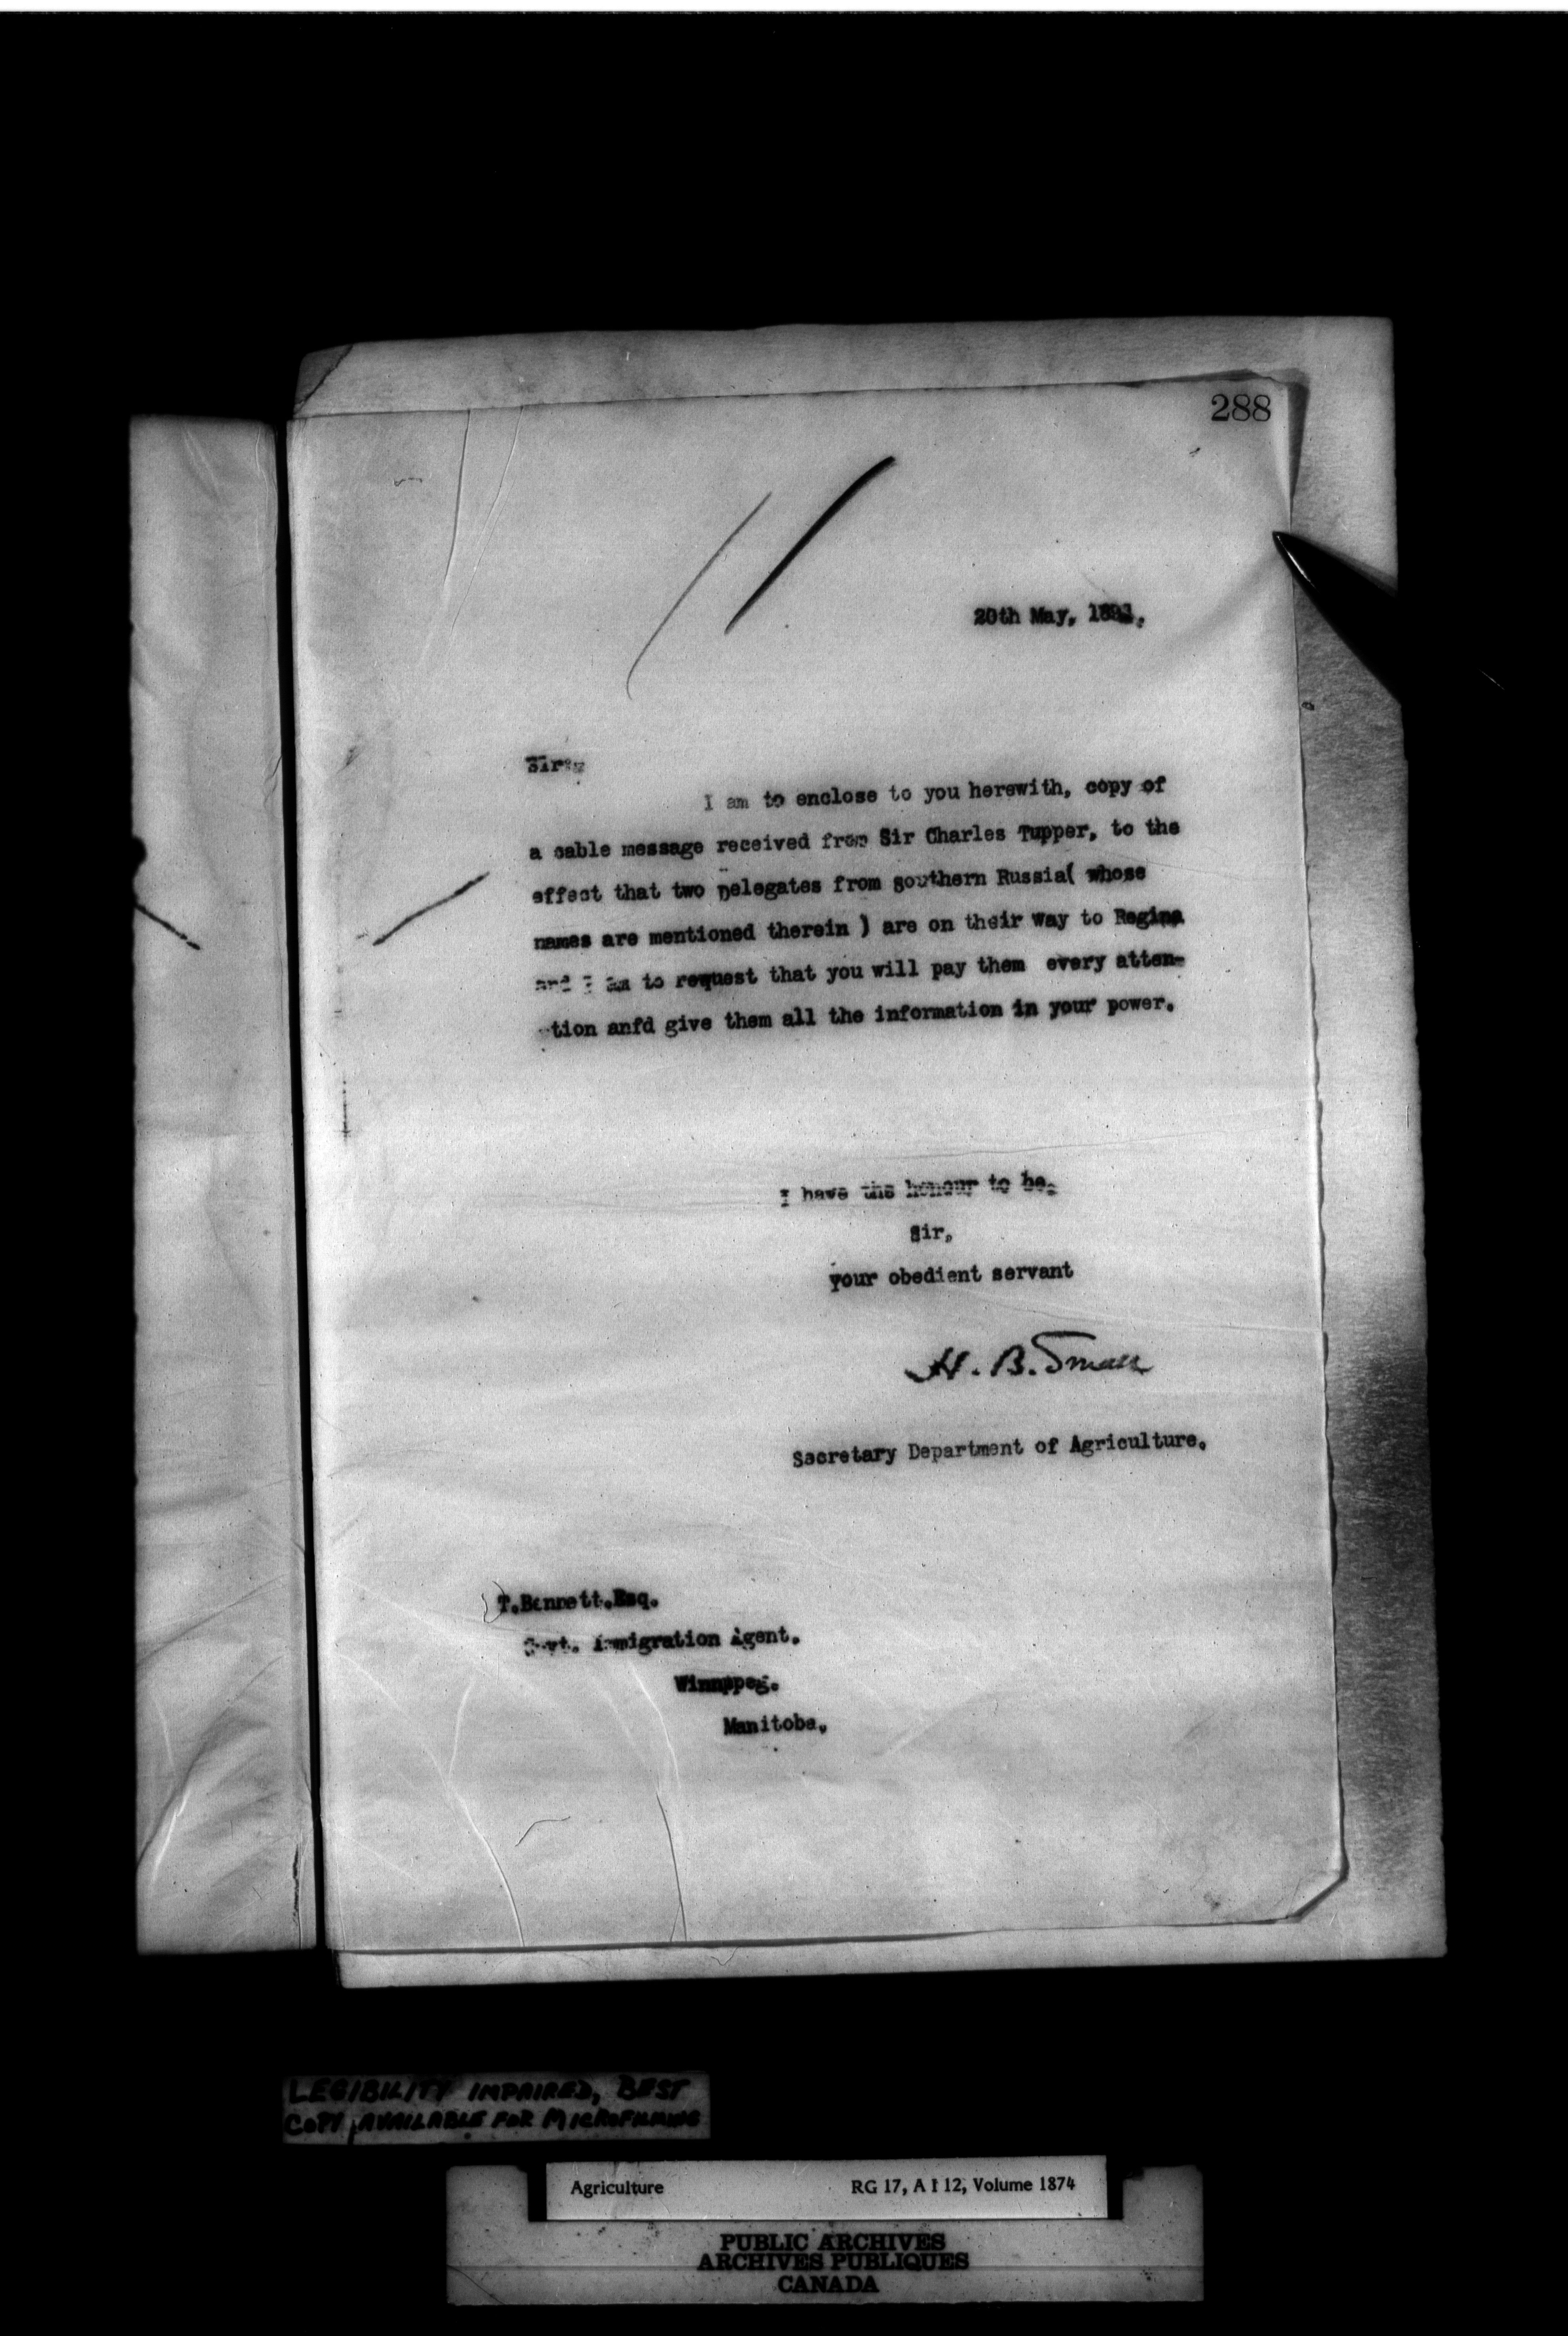 288
20th May, 1891.
Sir:
I am to enclose to you herewith, copy of
a cable message received from Sir Charles Tupper, to the
effect that two Delegates from Southern Russia( whose
names are mentioned therein ) are on their way to Regina
and I am to request that you will pay them every atten-
-tion anfd give them all the information in your power.
I have the honour to be.
Sir,
your obedient servant
H. B. Small
Secretary Department of Agriculture.
T.Bennett.Esq.
Govt. Immigration Agent.
Winnppeg.
Manitoba.
LEGIBILITY IMPAIRED, BEST
COPY AVAILABLE FOR MICROFILMING
Agriculture RG 17, A I 12, Volume 1874
PUBLIC ARCHIVES
ARCHIVES PUBLIQUES
CANADA